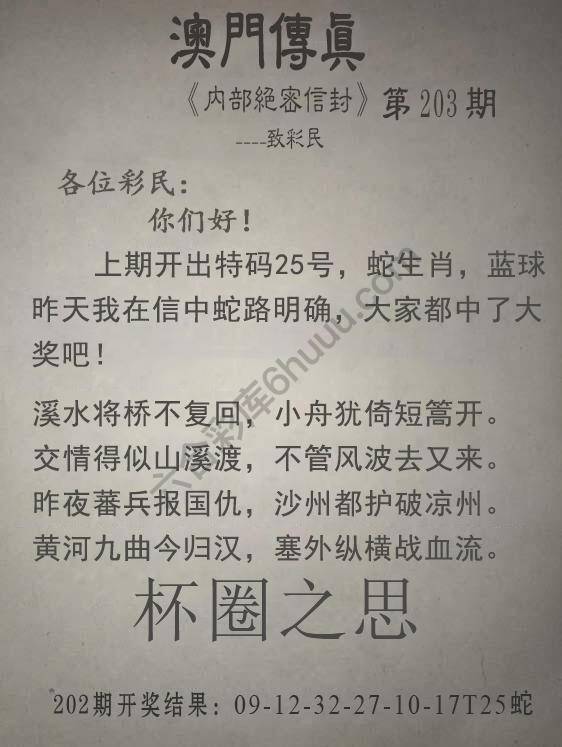 澳門傳眞
《内部絕密信封》第203期
----致彩民
各位彩民：
你们好！
上期开出特码25号，蛇生肖，蓝球
昨天我在信中蛇路明确，大家都中了大
奖吧！
溪水将桥不复回，小舟犹倚短篙开。
交情得似山溪渡，不管风波去又来。
昨夜蕃兵报国仇，沙州都护破凉州。
黄河九曲今归汉，塞外纵横战血流。
杯圈之思
202期开奖结果：09-12-32-27-10-17T25蛇
六合彩库6huuu.com